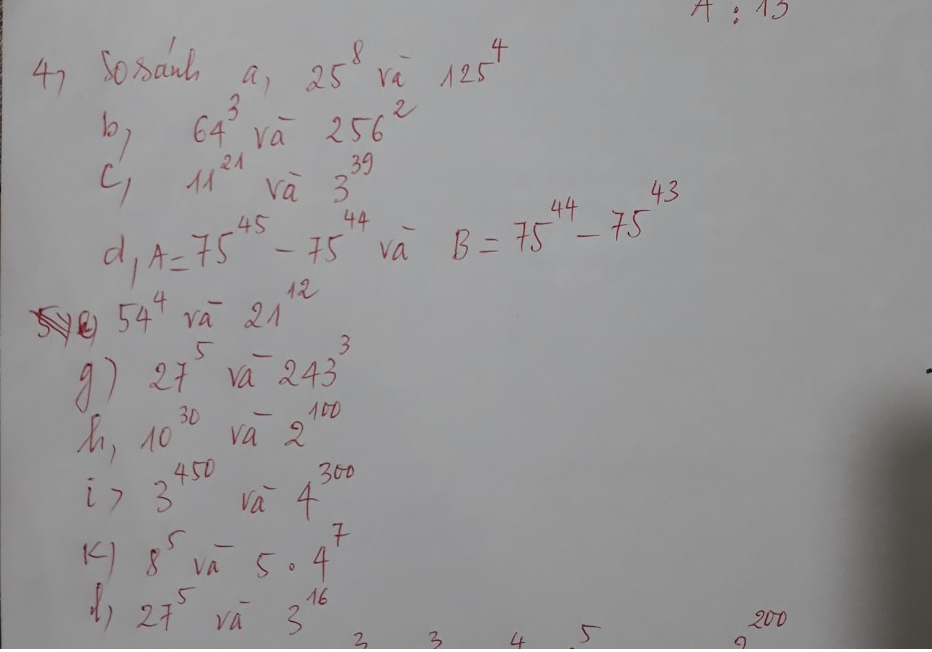 A : 13
4, So sánh a, 25⁸ và 125⁴
b, 64³ và 256²
c, 11²¹ và 3³⁹
d, A = 75⁴⁵ - 75⁴⁴ và B = 75⁴⁴ - 75⁴³
e) 54⁴ và 21¹²
g) 27⁵ và 243³
h, 10³⁰ và 2¹⁰⁰
i > 3⁴⁵⁰ và 4³⁰⁰
K) 8⁵ và 5 . 4⁷
l, 27⁵ và 3¹⁶